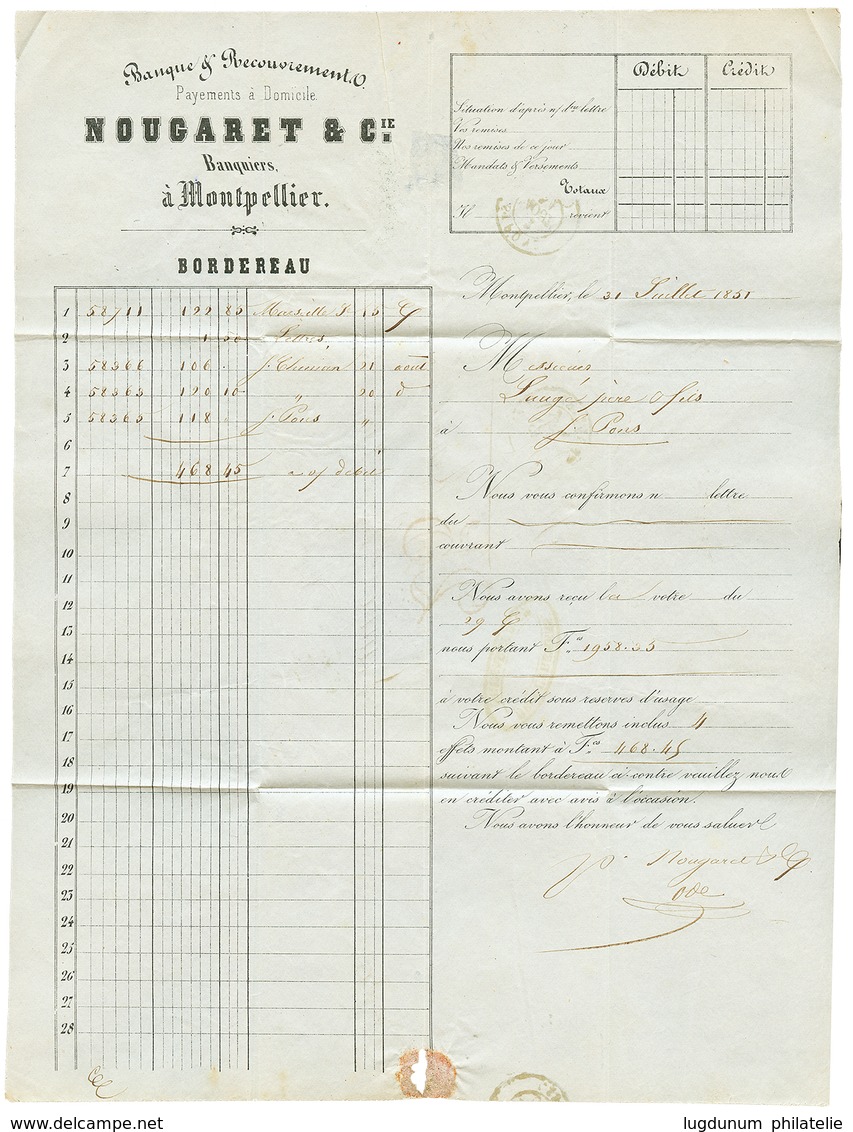 Banque & Recouvrements.
Payements à Domicile.
NOUGARET & CIE.
Banquiers,
à Montpellier.
BORDEREAU
1 58711 122 85 Marseille 15
2 1 50 Lettres
3 58366 106 . 21 août
4 58363 120 10 " 20 d
5 58365 118 St Pons "
6
7 468 45 a v/ débit
8
9
10
11
12
13
14
15
16
17
18
19
20
21
22
23
24
25
26
27
28
Débit Crédit
Situation d'après n/ dre lettre
Vos remises
Nos remises de ce jour
Mandats & Versements
Totaux
Il revient
Montpellier, le 31 Juillet 1851
Messieurs
Laugé père & fils
à St Pons
Nous vous confirmons n lettre
du
couvrant
Nous avons reçu la votre du
29
nous portant Fcs 1958.35
à votre crédit sous reserves d'usage
Nous vous remettons inclus 4
effets montant à Fcs 468.45
suivant le bordereau ci-contre veuillez nous
en créditer avec avis à l'occasion.
Nous avons l'honneur de vous saluer
Nougaret & Cie
delcampe.net
lugdunum philatelie